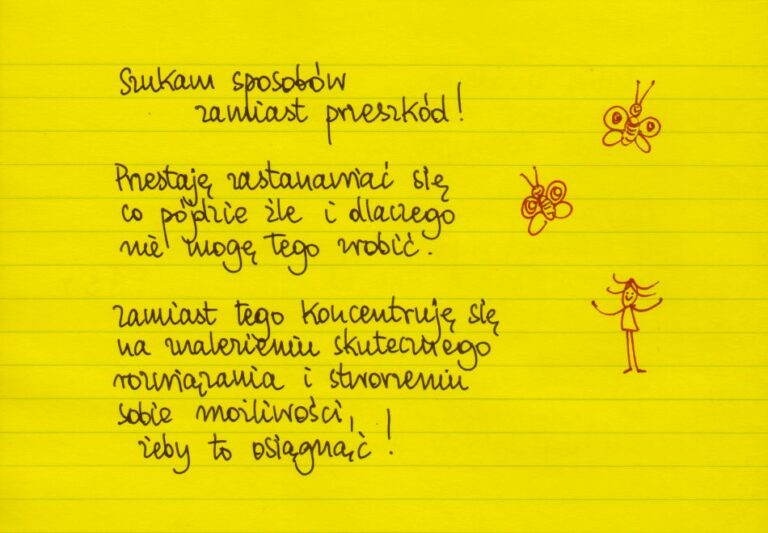 Szukam sposobów
zamiast przeszkód!
Przestaję zastanawiać się
co pójdzie źle i dlaczego
nie mogę tego zrobić.
zamiast tego koncentruję się
na znalezieniu skutecznego
rozwiązania i stworzeniu
sobie możliwości,
żeby to osiągnąć!